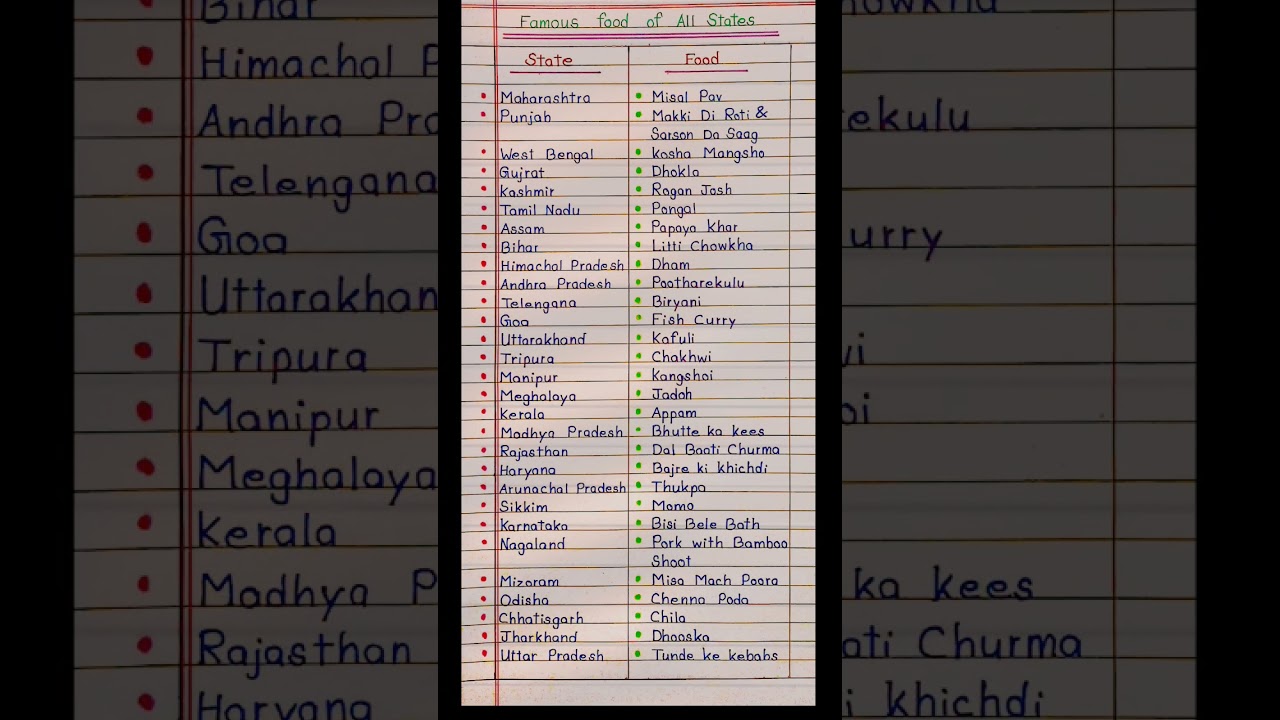 Bihar
Himachal P
Andhra Pra
Telengana
Goa
Uttarakhan
Tripura
Manipur
Meghalaya
Kerala
Madhya P
Rajasthan
Haryana
Famous food of All States
State Food
Maharashtra Misal Pav
Punjab Makki Di Roti &
Sarson Da Saag
West Bengal Kosha Mangsho
Gujrat Dhokla
Kashmir Rogan Josh
Tamil Nadu Pongal
Assam Papaya Khar
Bihar Litti Chowkha
Himachal Pradesh Dham
Andhra Pradesh Pootharekulu
Telengana Biryani
Goa Fish Curry
Uttarakhand Kafuli
Tripura Chakhwi
Manipur Kangshoi
Meghalaya Jadoh
Kerala Appam
Madhya Pradesh Bhutte ka kees
Rajasthan Dal Baati Churma
Haryana Bajre ki khichdi
Arunachal Pradesh Thukpa
Sikkim Momo
Karnataka Bisi Bele Bath
Nagaland Pork with Bamboo
Shoot
Mizoram Misa Mach Poora
Odisha Chenna Poda
Chhatisgarh Chila
Jharkhand Dhooska
Uttar Pradesh Tunde ke kebabs
howkha
ekulu
urry
vi
oi
ka kees
ati Churma
i khichdi